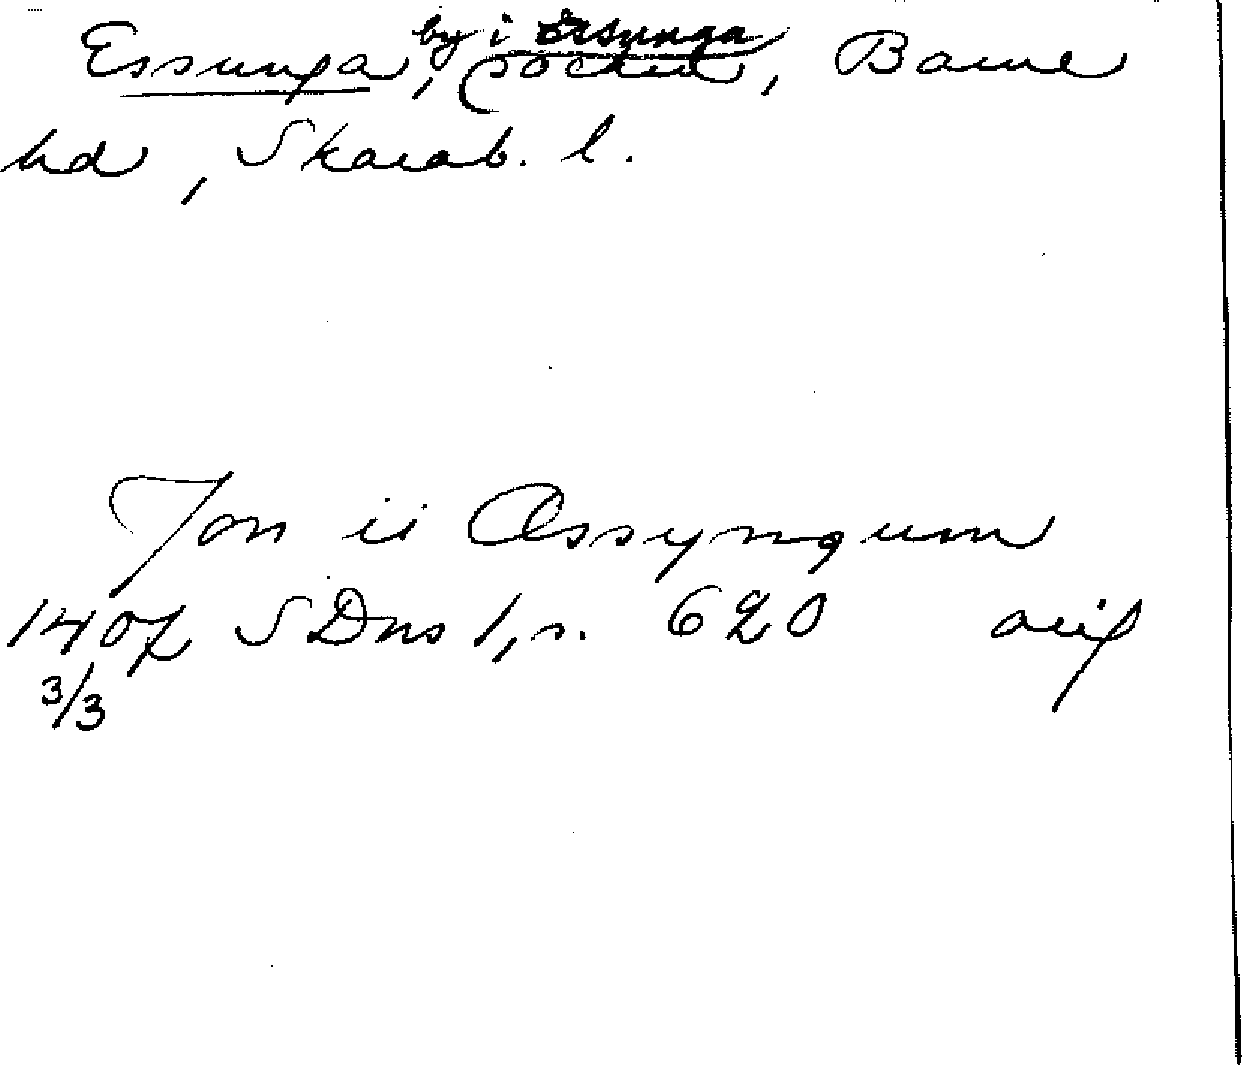 by i Essunga
Essunga, socken, Barne
hd, Skarab. l.
Jon ii Assyngum
1407 SDns 1, s. 620 orig
3/3